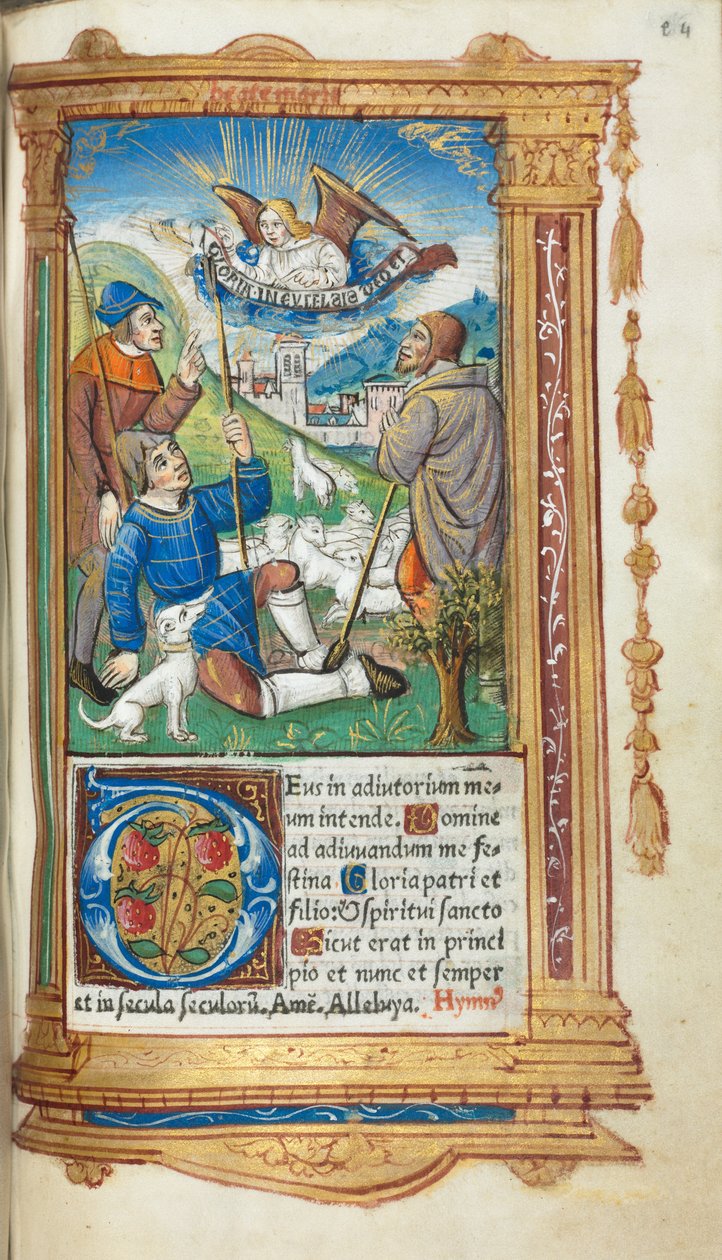 e 4
beate marie
GLORIA·IN·EXCELSIS DEO ET
Deus in adiutorium me⸗
um intende. Domine
ad adiuvandum me fe⸗
ſtina Gloria patri et
filio: & ſpiritui ſancto
Sicut erat in princi
pio et nunc et ſemper
et in ſecula ſeculorū. Amē. Alleluya. Hymnꝰ